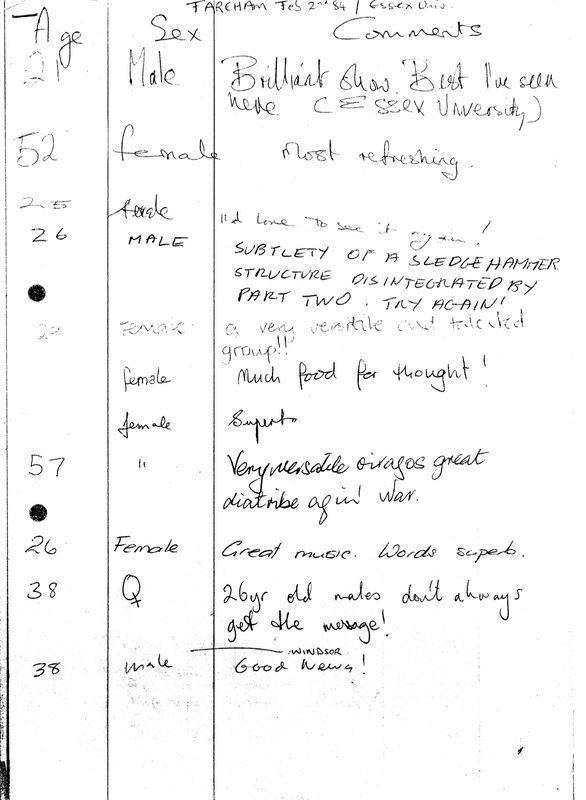 FAREHAM Feb 2nd 84 / Essex Univ.
Age Sex Comments
21 Male Brilliant show. Best I've seen
here (ESSEX University)
52 female Most refreshing.
25 female I'd love to see it again!
26 MALE SUBTLETY OF A SLEDGEHAMMER
STRUCTURE DISINTEGRATED BY
PART TWO. TRY AGAIN!
Female a very versatile and talented
group!!
female Much food for thought!
female Superb
57 " Very versatile viragos great
diatribe agin' War.
26 Female Great music. Words superb.
38 ♀ 26yr old males don't always
get the message!
WINDSOR
38 male Good News!